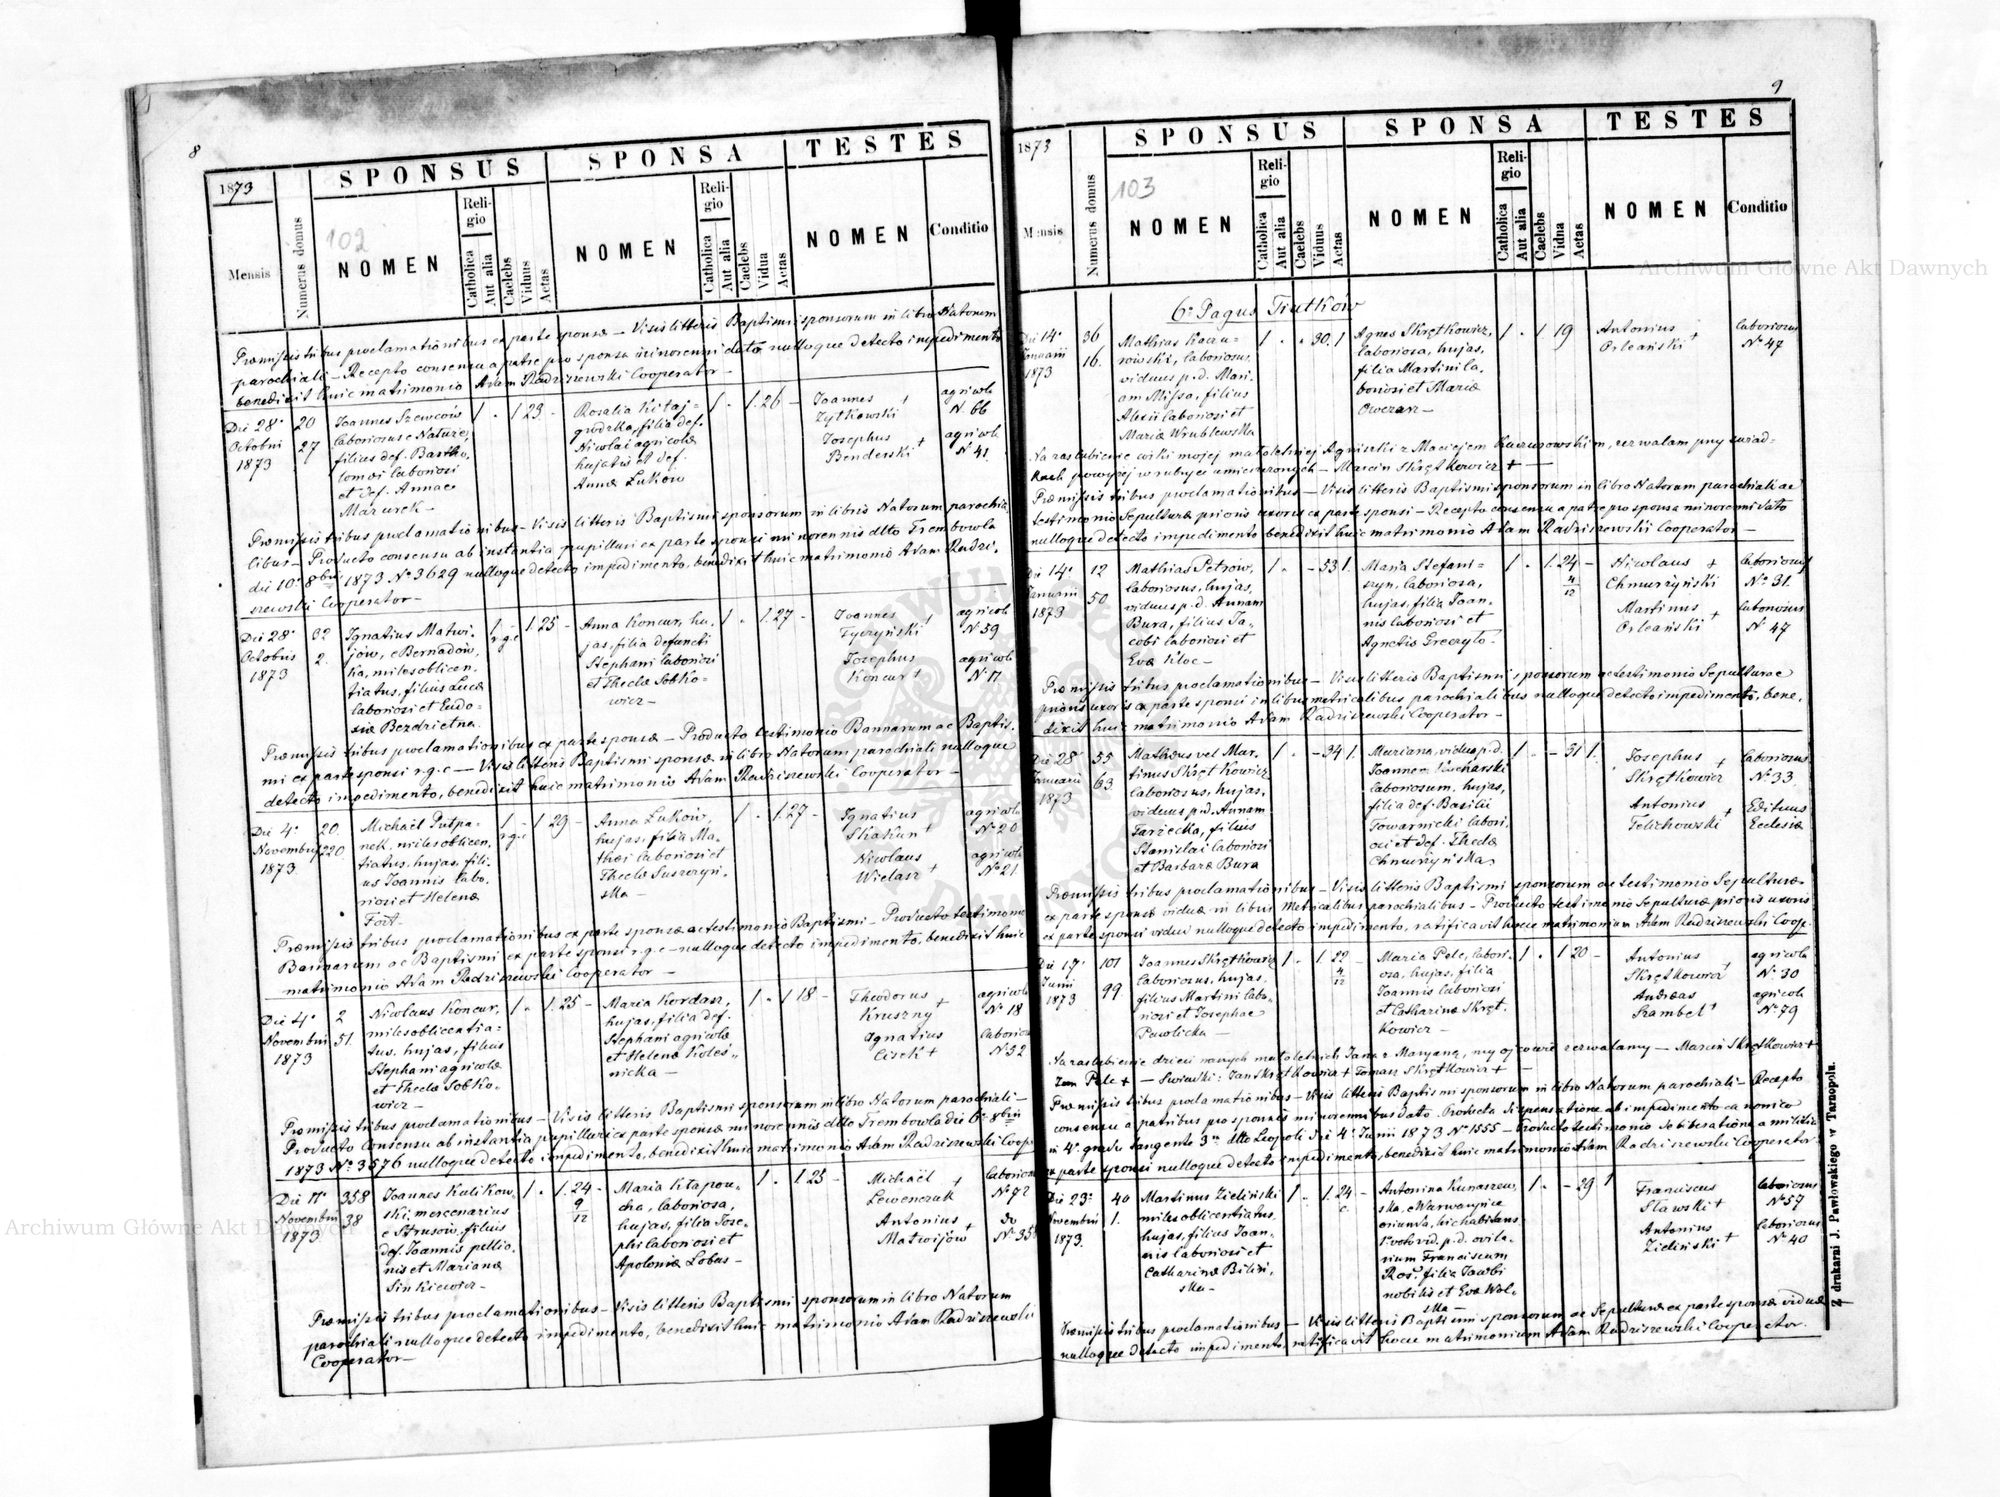 8
1873
SPONSUS
SPONSA
TESTES
Mensis
Numerus domus
102
NOMEN
Religio
Catholica
Aut alia
Caelebs
Viduus
Aetas
NOMEN
Religio
Catholica
Aut alia
Caelebs
Vidua
Aetas
NOMEN
Conditio
Præmissis tribus proclamationibus ex parte sponsæ – Visis litteris Baptismi sponsorum in libro Natorum
parochiali – Recepto consensu a patre pro sponsa minorenni dato nulloque detecto impedimento
benedixit huic matrimonio Adam Radziszewski Cooperator –
Die 28a
Octobris
1873
20
27
Joannes Szewców
laboriosus e Naturæ,
filius def. Bartho-
lomæi laboriosi
et def. Annæ
Mazurek –
1 - 1 23 -
Rosalia Kitaj-
grodzka, filia def.
Nicolai agricolæ
hujatis et def.
Annæ Luków
1 - 1 26 -
Joannes +
Zytkowski
Josephus +
Benderski
agricola
N. 66
agricola
N. 41
Præmissis tribus proclamationibus – Visis litteris Baptismi sponsorum in libris Natorum parochia-
libus – Producto consensu ab instantia pupillari ex parte sponsi minorennis dtto Trembowla
die 10a 8bris 1873 No 3629 nulloque detecto impedimento, benedixit huic matrimonio Adam Radzi-
szewski Cooperator –
Die 28a
Octobris
1873
32
2.
Ignatius Matwi-
jów, e Bernadów-
ka, miles oblicen-
tiatus, filius Lucæ
laboriosi et Eudo-
xiæ Bezdzietna
1 r.g.c - 1 25 -
Anna Koncur, hu-
jas, filia defuncti
Stephani laboriosi
et Theclæ Sobko-
wicz –
1 - 1. 27 -
Joannes +
Zyczyński
Josephus
Koncur +
agricola
N. 59
agricola
N. 17
Præmissis tribus proclamationibus ex parte sponsæ – Producto testimonio Bannorum ac Baptis-
mi ex parte sponsi r.g.c – Visis litteris Baptismi sponsæ in libro Natorum parochiali nulloque
detecto impedimento, benedixit huic matrimonio Adam Radziszewski Cooperator –
Die 4a
Novembris
1873
20.
220
Michaël Putpa-
nek, miles oblicen-
tiatus, hujas, fili-
us Joannis labo-
riosi et Helenæ
Fort –
1 r.g.c - 1 29 -
Anna Luków,
hujas, filia Ma-
thæi laboriosi et
Theclæ Suszczyń-
ska –
1 - 1. 27 -
Ignatius
Skakun +
Nicolaus
Wielasz +
agricola
No 20
agricola
No 21
Præmissis tribus proclamationibus ex parte sponsæ ac testimonio Baptismi – Producto testimonio
Bannorum ac Baptismi ex parte sponsi r.g.c – nulloque detecto impedimento, benedixit huic
matrimonio Adam Radziszewski Cooperator –
Die 4a
Novembris
1873
2
51.
Nicolaus Koncur,
miles oblicentia-
tus, hujas, filius
Stephani agricolæ
et Theclæ Sobko-
wicz –
1 - 1. 25 -
Maria Kordasz,
hujas, filia def.
Stephani agricolæ
et Helenæ Koleś-
nicka –
1 - 1 18 -
Theodorus +
Kruszny
Ignatius
Cisek +
agricola
No 18
laboriosus
No 32
Præmissis tribus proclamationibus – Visis litteris Baptismi sponsorum in libro Natorum parochiali –
Producto Consensu ab instantia pupillari ex parte sponsæ minorennis dtto Trembowla die 6a 8bris
1873 No 3576 nulloque detecto impedimento, benedixit huic matrimonio Adam Radziszewski Cooper
Die 11a
Novembris
1873
358
38
Joannes Kulikow-
ski, mercenarius
e Strusów, filius
def. Joannis pellio-
nis et Marianæ
Sinkiewicz –
1 - 1. 24 9/12 -
Maria Kłapou-
cha, laboriosa,
hujas, filia Jose-
phi laboriosi et
Apoloniæ Lobas –
1 - 1 25 -
Michaël +
Lewenczuk
Antonius +
Matwijów
laboriosus
No 72
do
No 358
Præmissis tribus proclamationibus – Visis litteris Baptismi sponsorum in libro Natorum
parochiali nulloque detecto impedimento, benedixit huic matrimonio Adam Radziszewski
Cooperator –
9
1873
SPONSUS
SPONSA
TESTES
Mensis
Numerus domus
103
NOMEN
Religio
Catholica
Aut alia
Caelebs
Viduus
Aetas
NOMEN
Religio
Catholica
Aut alia
Caelebs
Vidua
Aetas
NOMEN
Conditio
6o Pagus Tiutków
Die 14a
Januarii
1873
36
16.
Mathias Kaczu-
rowski, laboriosus,
viduus p.d. Mari-
am Missa, filius
Alexii laboriosi et
Mariæ Wrublewska
1 - - 30. 1
Agnes Skrętkowicz,
laboriosa, hujas,
filia Martini la-
boriosi et Mariæ
Owczar –
1 - 1 19
Antonius +
Orleański
laboriosus
No 47
Na zaślubienie córki mojej małoletniej Agnieszki z Maciejem Kaczurowskim, zezwalam przy świad-
kach powyżej w rubryce umieszczonych – Marcin Skrętkowicz + –
Præmissis tribus proclamationibus – Visis litteris Baptismi sponsorum in libro Natorum parochiali ac
testimonio Sepulturæ prioris uxoris ex parte sponsi – Recepto consensu a patre pro sponsa minorenni dato
nulloque detecto impedimento benedixit huic matrimonio Adam Radziszewski Cooperator –
Die 14a
Januarii
1873
12
50
Mathias Petrów,
laboriosus, hujas,
viduus p.d. Annam
Bura, filius Ja-
cobi laboriosi et
Evæ Kloc –
1 - - 53 1.
Maria Stefani-
szyn, laboriosa,
hujas, filia Joan-
nis laboriosi et
Agnetis Greczyło –
1 - 1. 24 4/12 -
Nicolaus +
Chmurzyński
Martinus +
Orleański
laboriosus
No 31.
laboriosus
No 47
Præmissis tribus proclamationibus – Visis litteris Baptismi sponsorum ac testimonio Sepulturæ
prioris uxoris ex parte sponsi in libris metricalibus parochialibus nulloque detecto impedimento, bene-
dixit huic matrimonio Adam Radziszewski Cooperator –
Die 28
Januarii
1873
55
63
Mathæus vel Mar-
tinus Skrętkowicz
laboriosus, hujas,
viduus p.d. Annam
Tarzecka, filius
Stanislai laboriosi
et Barbaræ Bura
1 - - 34 1.
Mariana, vidua p.d.
Joannem Kucharski
laboriosum, hujas,
filia def. Basilii
Towarnicki labori-
osi et def. Theclæ
Chmurzyńska
1 - - 31 1.
Josephus +
Skrętkowicz
Antonius +
Telichowski
laboriosus
No 33
Edituus
Ecclesiæ
Præmissis tribus proclamationibus – Visis litteris Baptismi sponsorum ac testimonio Sepulturæ
ex parte sponsæ viduæ in libris Metricalibus parochialibus – Producto testimonio Sepulturæ prioris uxoris
ex parte sponsi vidui nulloque detecto impedimento, ratificavit hocce matrimonium Adam Radziszewski Coop.
Die 17a
Junii
1873
101
99.
Joannes Skrętkowicz
laboriosus, hujas,
filius Martini labo-
riosi et Josephæ
Pawlicka –
1 - 1 22 4/12 -
Maria Pelc, labori-
osa, hujas, filia
Joannis laboriosi
et Catharinæ Skręt-
kowicz –
1 - 1 20 -
Antonius +
Skrętkowicz
Andreas
Szambel +
agricola
No 30
agricola
No 79
Na zaślubienie dzieci naszych małoletnich Jana z Maryaną, my ojcowie zezwalamy – Marcin Skrętkowicz +
Jan Pelc + – Świadki: Jan Skrętkowicz + Tomasz Skrętkowicz + –
Præmissis tribus proclamationibus – Visis litteris Baptismi sponsorum in libro Natorum parochiali – Recepto
consensu a patribus pro sponsis minorennibus dato. Producta dispensatione ab impedimento canonico
in 4o gradu tangente 3m dtto Leopoli die 4a Junii 1873 No 1555 – Producto testimonio de liberatione a militia
ex parte sponsi nulloque detecto impedimento, benedixit huic matrimonio Adam Radziszewski Cooperator.
Die 23a
Novembris
1873.
40
1.
Martinus Zieliński
miles oblicentiatus,
hujas, filius Joan-
nis laboriosi et
Catharinæ Biliń-
ska –
1 - 1. 24 -
Antonina Kunaszew-
ska, e Warwaryńce
oriunda, hic habitans
vidua p.d. ovila-
rium Franciscum
Roś. filia Jacobi
nobilis et Evæ Wol-
ska –
1 - - 29 1
Franciscus
Sławski +
Antonius
Zieliński +
laboriosus
No 57
laboriosus
No 40
Præmissis tribus proclamationibus – Visis litteris Baptismi sponsorum ac Sepulturæ ex parte sponsæ viduæ
nulloque detecto impedimento, ratificavit hocce matrimonium Adam Radziszewski Cooperator.
Z drukarni J. Pawłowskiego w Tarnopolu.
Archiwum Główne Akt Dawnych
Archiwum Główne Akt Dawnych